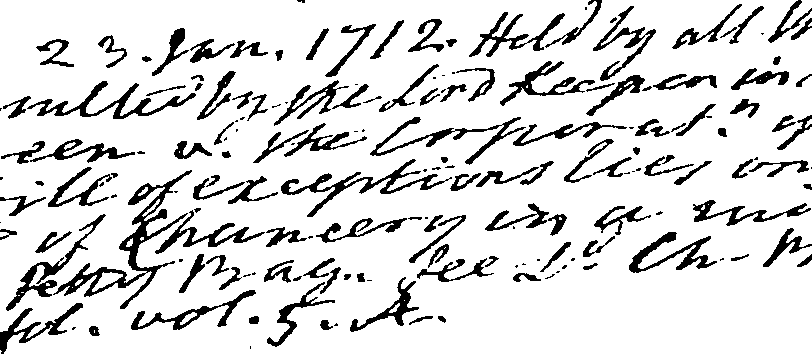 23. Jan. 1712. Held by all th
sulted by the Lord Keeper in a
een v. the Corporat.n of
ill of exceptions lies on
of Chancery in a
Petty Bag. See Ld. Ch. B
fol. vol. 5. A.